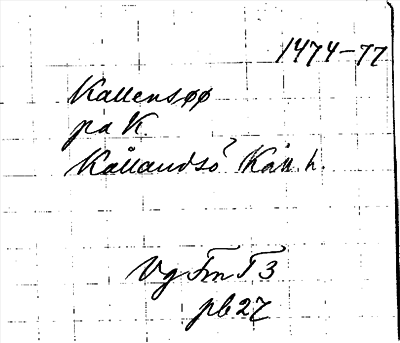 1474-77
Kallensøø
pa K.
Kållandsö? Kåll h.
Vg Fm T 3
pb 27